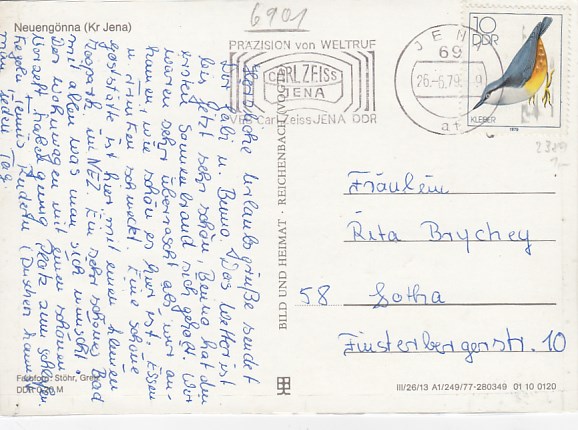 6901
Neuengönna (Kr Jena)
PRÄZISION von WELTRUF
CARL ZEISS
JENA
VEB Carl Zeiss JENA DDR
JENA
69
26.-6.79
at
10
DDR
KLEIBER
1979
Herzliche Urlaubsgrüße sendet
Dir Gabi u. Benno. Das Wetter ist
bis jetzt sehr schön, Benno hat den
ersten Sonnenbrand sich geholt. Wir
waren sehr überrascht als wir an-
kamen, wie schön es hier ist. Essen
u. Trinken schmeckt. Eine schöne
gaststätte ist hier mit einen kleinen
Tierpark in NEZ. Ein sehr schönes Bad
mit allem was man sich wünscht.
Der Wohnwagen mit einen schönen
Vorzelt, haben genug Platz zum schlafen.
Kegeln, Tennis, Rudern (Duschen kann
man jeden Tag.
BILD UND HEIMAT · REICHENBACH (VOGTL)
Fräulein
Rita Brychey
58 Gotha
Finsterbergerstr. 10
Farbfoto: Stöhr, Greiz
DDR 0,20 M
III/26/13 A1/249/77-280349 01 10 0120